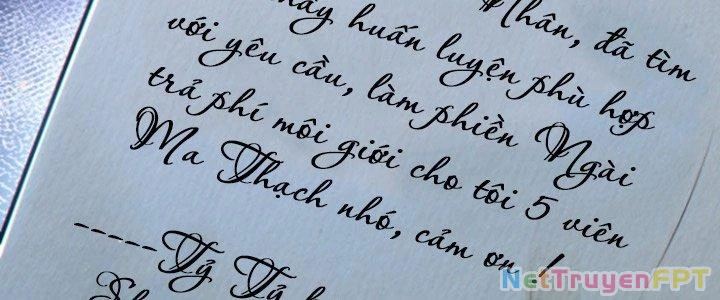 Nhân, đã tìm
thầy huấn luyện phù hợp
với yêu cầu, làm phiền Ngài
trả phí môi giới cho tôi 5 viên
Ma Thạch nhó, cảm ơn !
-----Tỷ Tỷ
NetTruyenFPT